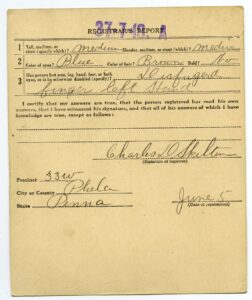 37-3-19-A
REGISTRAR'S REPORT
1 Tall, medium, or short (specify which)? Medium Slender, medium, or stout (which)? Medium
2 Color of eyes? Blue Color of hair? Brown Bald? No
3 Has person lost arm, leg, hand, foot, or both eyes, or is he otherwise disabled (specify)? Disfigured
finger left Hand
I certify that my answers are true, that the person registered has read his own answers, that I have witnessed his signature, and that all of his answers of which I have knowledge are true, except as follows:
Charles D Skilton
(Signature of registrar)
Precinct 33W
City or County Phila
State Penna
June 5
(Date of registration)